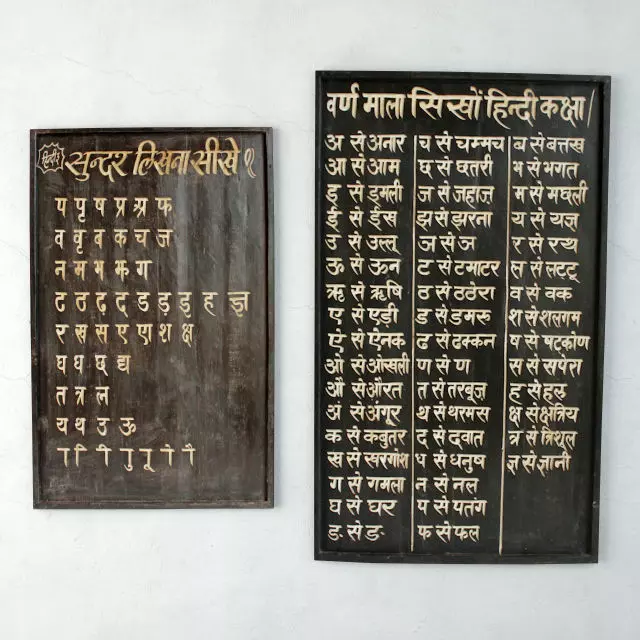 हिन्दी
सुन्दर लिखना सीखे १
प पृ ष प्र श्र फ
व वृ द क च ज
न म भ झ ग
ट ठ ढ द ड ड़ इ ह ज्ञ
र ख स ए ऐ श क्ष
घ ध छ द्य
त त्र ल
य थ उ ऊ
ा ि ी ु ू ो ौ
वर्ण माला सिखों हिन्दी कक्षा/
अ से अनार
आ से आम
इ से इमली
ई से ईस
उ से उल्लू
ऊ से ऊन
ऋ से ऋषि
ए से एड़ी
ऐ से ऐनक
ओ से ओखली
औ से औरत
अं से अंगूर
क से कबुतर
ख से खरगोश
ग से गमला
घ से घर
ङ से ङ
च से चम्मच
छ से छतरी
ज से जहाज
झ से झरना
ञ से ञ
ट से टमाटर
ठ से ठठेरा
ड से डमरू
ढ से ढक्कन
ण से ण
त से तरबूज
थ से थरमस
द से दवात
ध से धनुष
न से नल
प से पतंग
फ से फल
ब से बत्तख
भ से भगत
म से मछली
य से यज्ञ
र से रथ
ल से लटटू
व से वक
श से शलगम
ष से षटकोण
स से सपेरा
ह से हल
क्ष से क्षत्रिय
त्र से त्रिशूल
ज्ञ से ज्ञानी